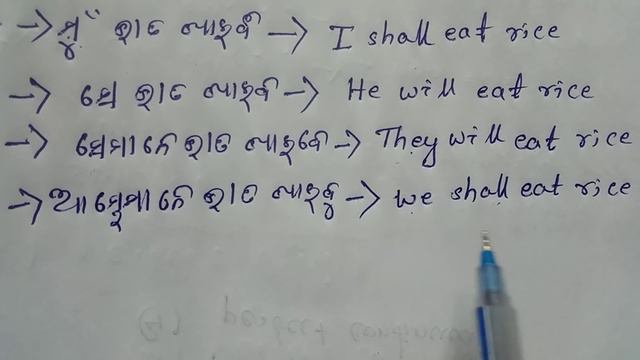 → ମୁଁ ଭାତ ଖାଇବି → I shall eat rice
→ ସେ ଭାତ ଖାଇବ → He will eat rice
→ ସେମାନେ ଭାତ ଖାଇବେ → They will eat rice
→ ଆମ୍ଭେମାନେ ଭାତ ଖାଇବୁ → we shall eat rice